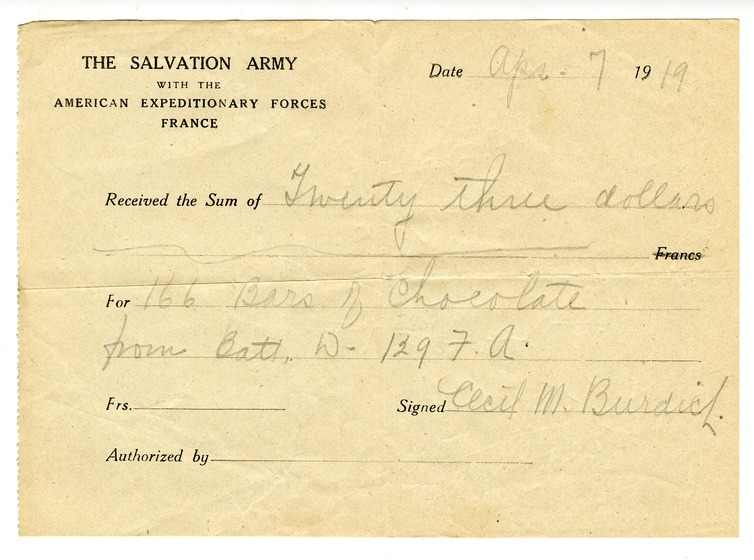 THE SALVATION ARMY
WITH THE
AMERICAN EXPEDITIONARY FORCES
FRANCE
Date Apr. 7 1919
Received the Sum of Twenty three dollars
Francs
For 166 Bars of Chocolate
from Batt. D- 129 F.A.
Frs.
Signed Cecil M. Burdick.
Authorized by